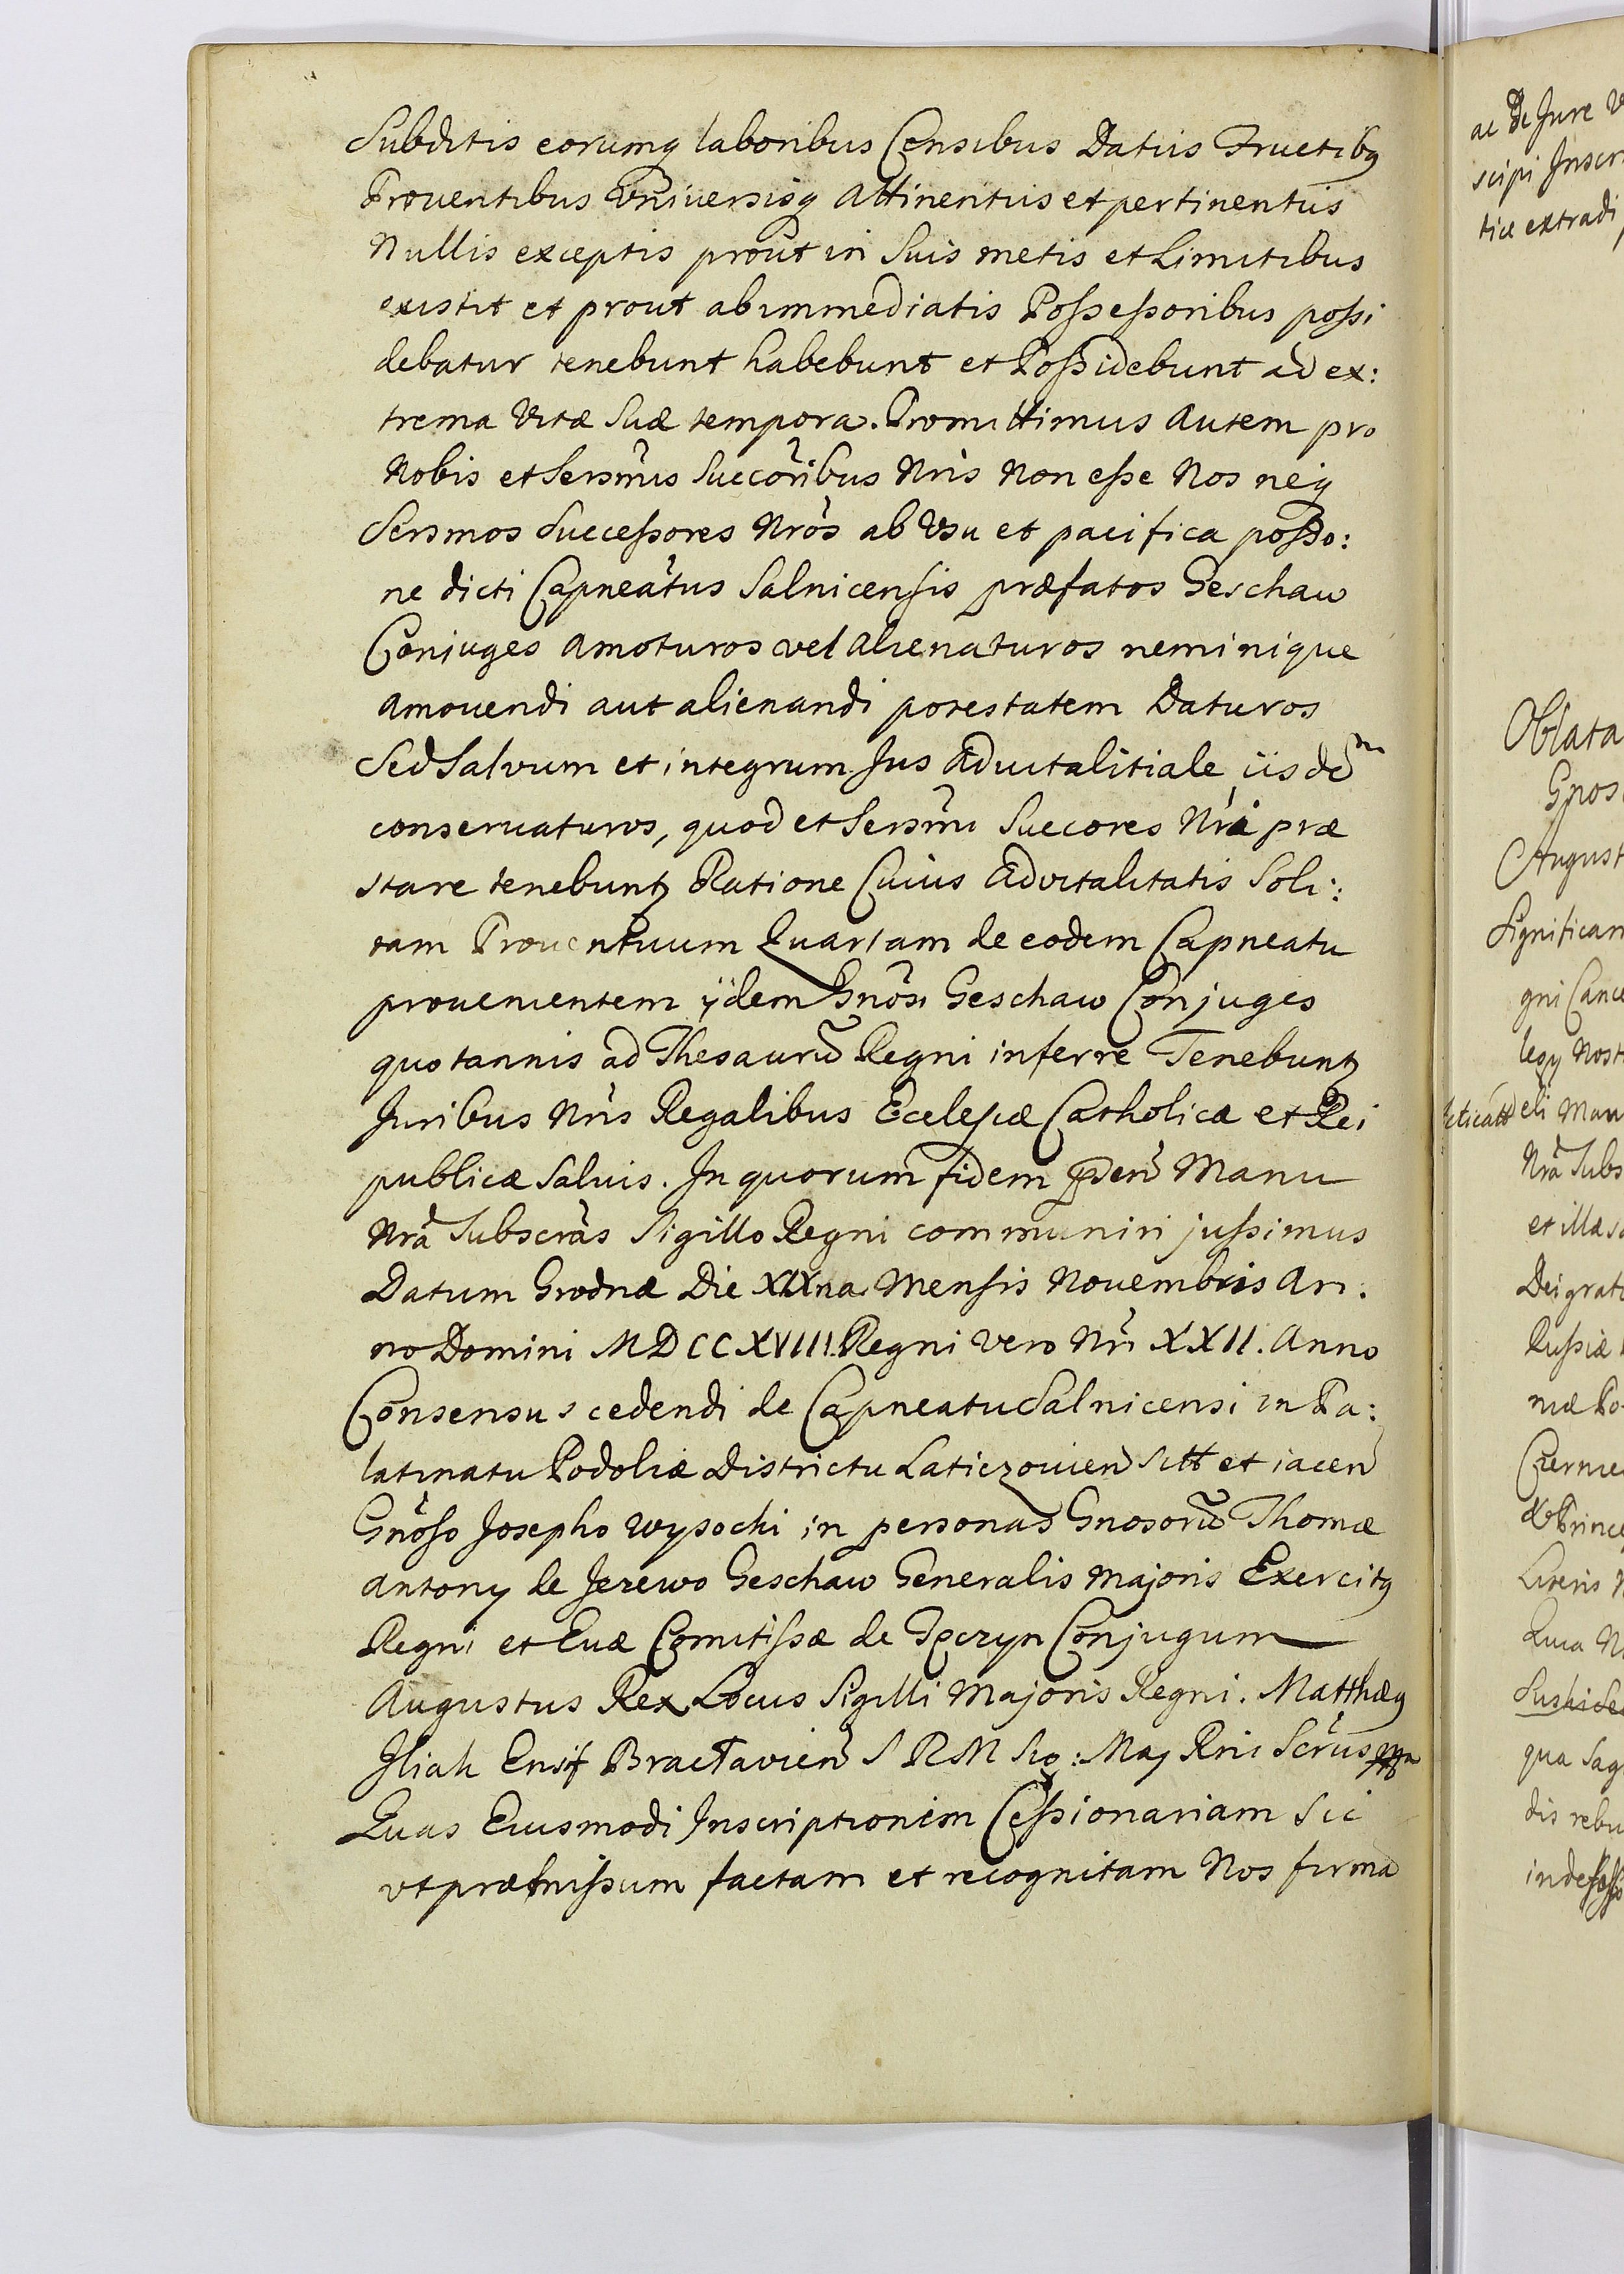 Subditis eorumq laboribus Censibus Datiis Fructibq
Prouentibus Vniuersisq Attinentiis et pertinentiis
Nullis exceptis prout in Suis metis et Limitibus
existit et prout ab immediatis Possessoribus possi
debatur tenebunt habebunt et Possidebunt ad ex:
trema Vitæ Suæ tempora. Promittimus Autem pro
Nobis et Sersmis Succoribus Nris Non esse Nos neq
Sersmos Successores Nros ab Vsu et pacifica posso:
ne dicti Capneatus Salnicensis præfatos Geschaw
Conjuges Amoturos vel Alienaturos neminique
Amouendi aut alienandi potestatem Daturos
Sed Salvum et integrum Jus Aduitalitiale iisdem
conseruaturos, quod et Sersmi Succores Nri præ
stare tenebunt Ratione Cuius Aduitalitatis Soli:
tam Prouentuum Quartam de eodem Capneatu
prouenientem ijdem Gnosi Geschaw Conjuges
quotannis ad Thesauru Regni inferre Tenebunt
Juribus Nris Regalibus Ecclesiæ Catholicæ et Rei
publicæ Saluis. In quorum fidem psen Manu
Nra Subscras Sigillo Regni communiri jussimus
Datum Grodnæ Die XIXna Mensis Nouembris An:
no Domini MDCCXVIII Regni vero Nri XXII. Anno
Consensus cedendi de Capneatu Salnicensi in Pa:
latinatu Podoliæ Districtu Laticzouien sitt et iacen
Gnoso Josepho Wysocki in personas Gnosoru Thomæ
Antony de Jerewo Geschaw Generalis Majoris Exercitq
Regni et Euæ Comitissæ de Conjugum
Augustus Rex Locus Sigilli Majoris Regni. Matthæq
Jliak Ensif Bractavien S R M Sig: Maj Rni Scrus mp
Quas Eiusmodi Inscriptionem Cessionariam Sic
vt præmissum factam et recognitam Nos firma
ac De Jure
scipi Inscr
tice extradi
Oblata
Gnos
August
Significam
gni Cance
leoy Nost
eli Man
Nra Subs
et illæs
Dei grat
Russiæ
niæ Po
Czernie
Literis
Quia N
qua Sag
dis rebu